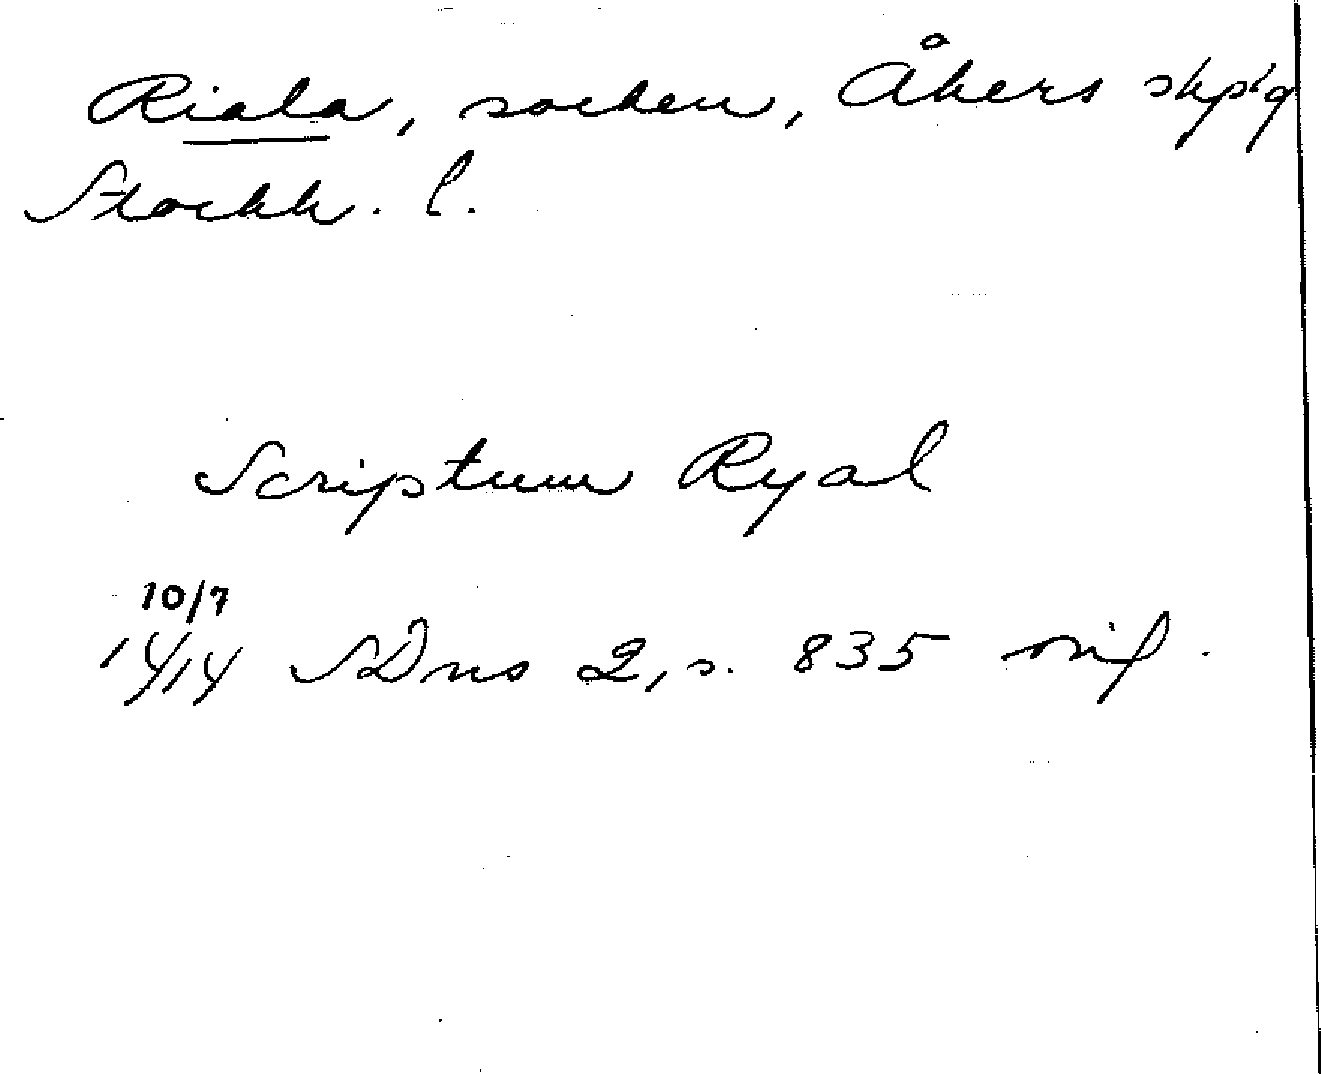 Riala, socken, Åkers skp's
Stockh. l.
Scriptum Ryal
10/7
1414 SDns 2, s. 835 orig.